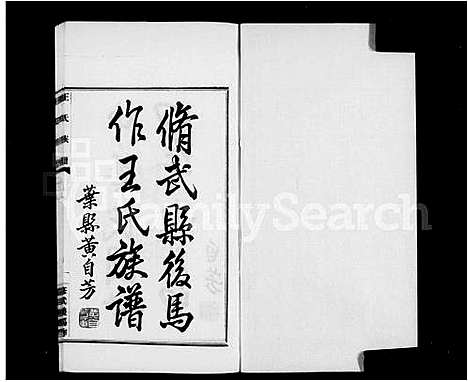 脩武縣後馬
作王氏族譜
葉縣黄自芳
FamilySearch